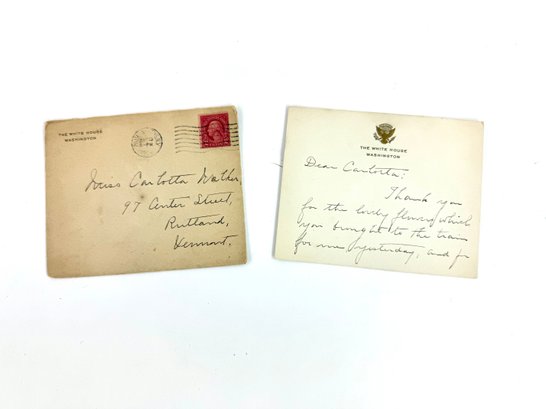 THE WHITE HOUSE
WASHINGTON
Miss Carlotta Walker,
97 Center Street,
Rutland,
Vermont.
THE WHITE HOUSE
WASHINGTON
Dear Carlotta:
Thank you
for the lovely flowers which
you brought to the train
for me yesterday, and for